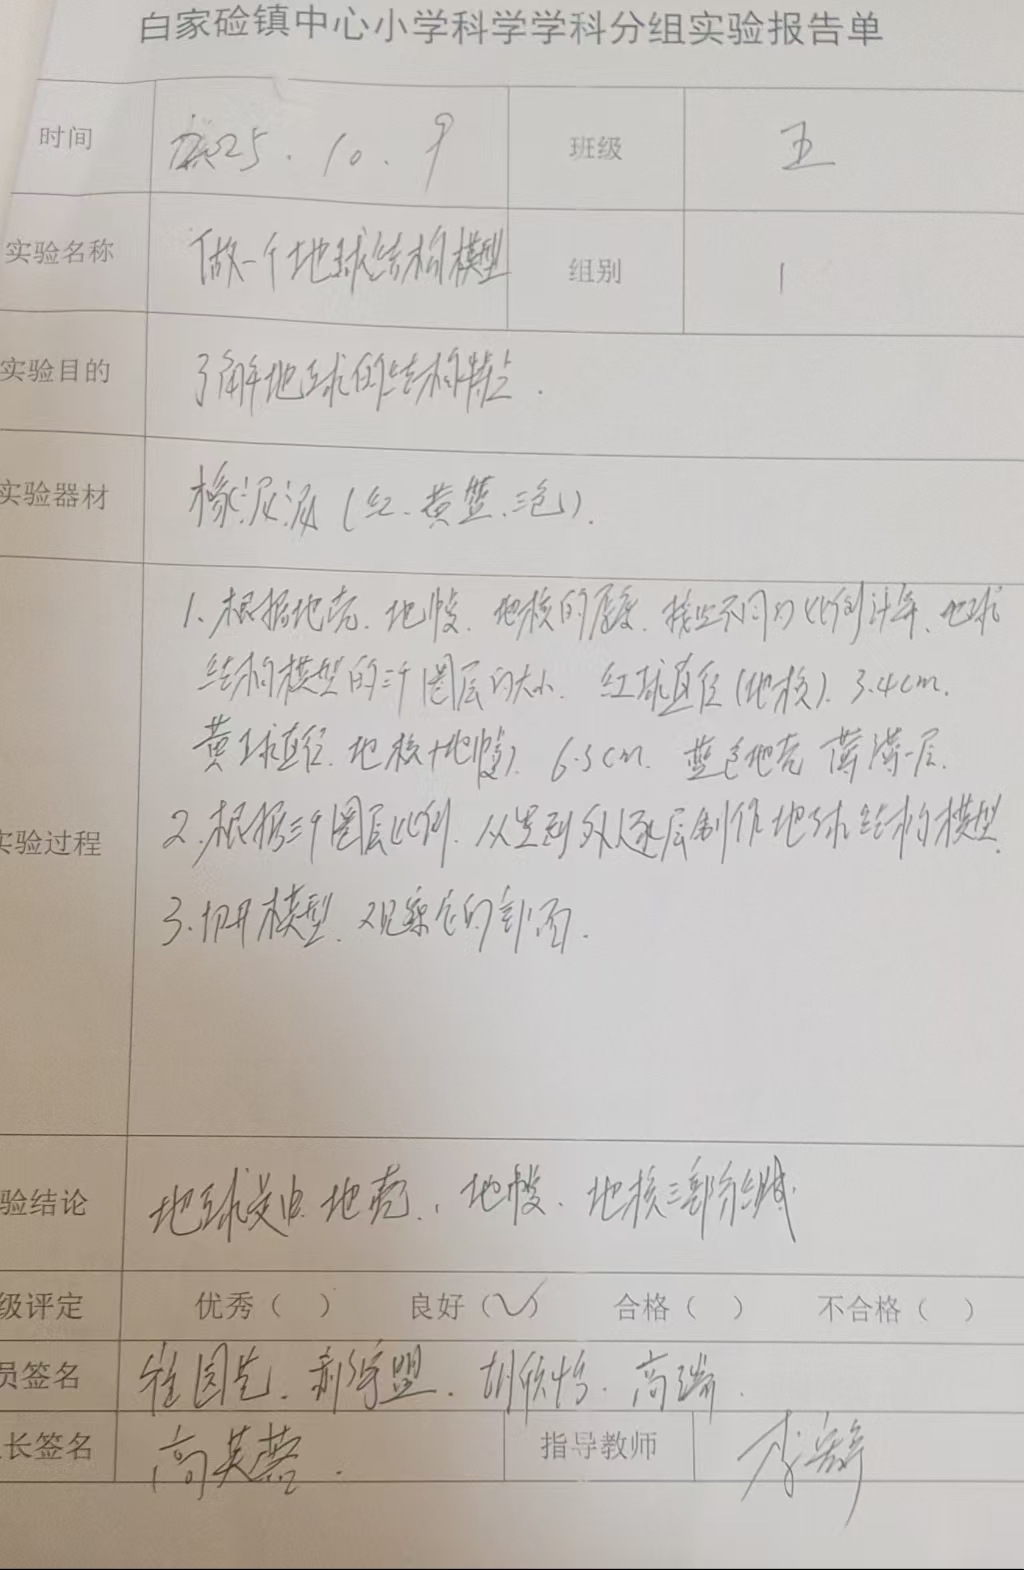 白家硷镇中心小学科学学科分组实验报告单
时间 2025.10.9 班级 五
实验名称 做一个地球结构模型 组别 1
实验目的 了解地球的结构特点.
实验器材 橡泥泥(红、黄蓝、三色).
1.根据地壳、地幔、地核的厚度、按照不同的比例计算、地球
结构模型的三个圈层的大小. 红球直径(地核). 3.4cm.
黄球直径.地核+地幔). 6.3cm. 蓝色地壳 薄薄一层.
2.根据三个圈层比例.从里到外逐层制作地球结构模型.
实验过程
3.切开模型、观察它的剖面.
验结论 地球是由地壳、地幔、地核三部分组成.
级评定 优秀( ) 良好(✓) 合格( ) 不合格( )
员签名 胡欣怡.高瑞.
长签名 高英蓉. 指导教师 李